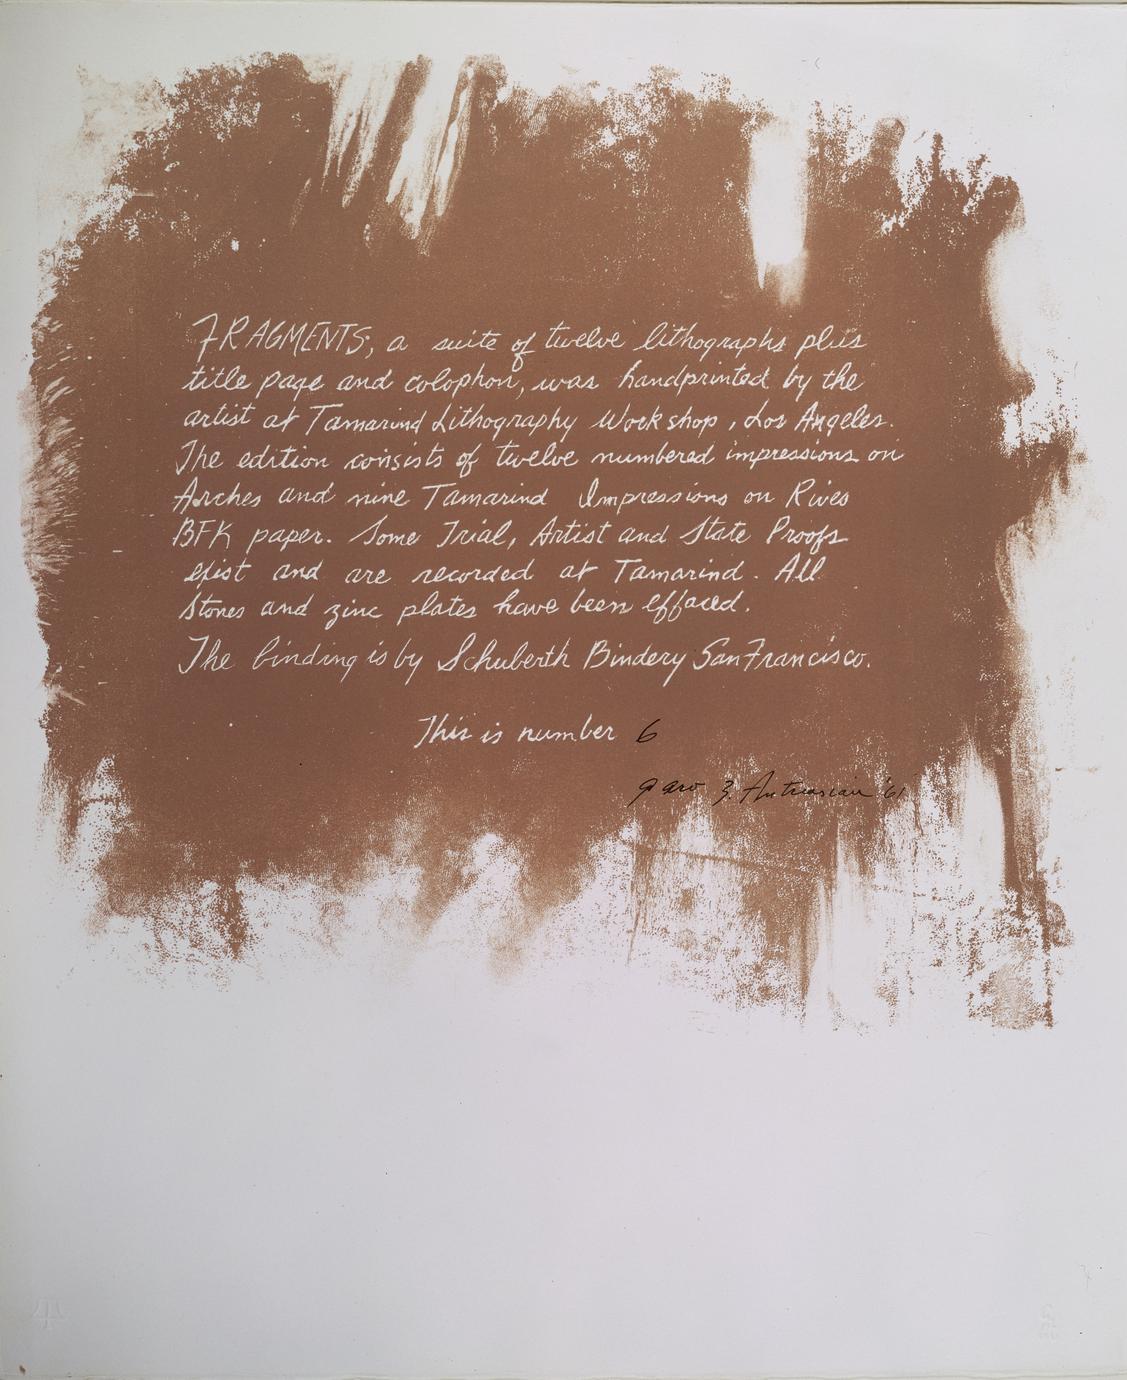 FRAGMENTS, a suite of twelve lithographs plus
title page and colophon, was handprinted by the
artist at Tamarind Lithography Workshop, Los Angeles.
The edition consists of twelve numbered impressions on
Arches and nine Tamarind Impressions on Rives
BFK paper. Some Trial, Artist and State Proofs
exist and are recorded at Tamarind. All
Stones and zinc plates have been effaced.
The binding is by Schuberth Bindery San Francisco.
This is number 6
Garo Z. Antreasian '61